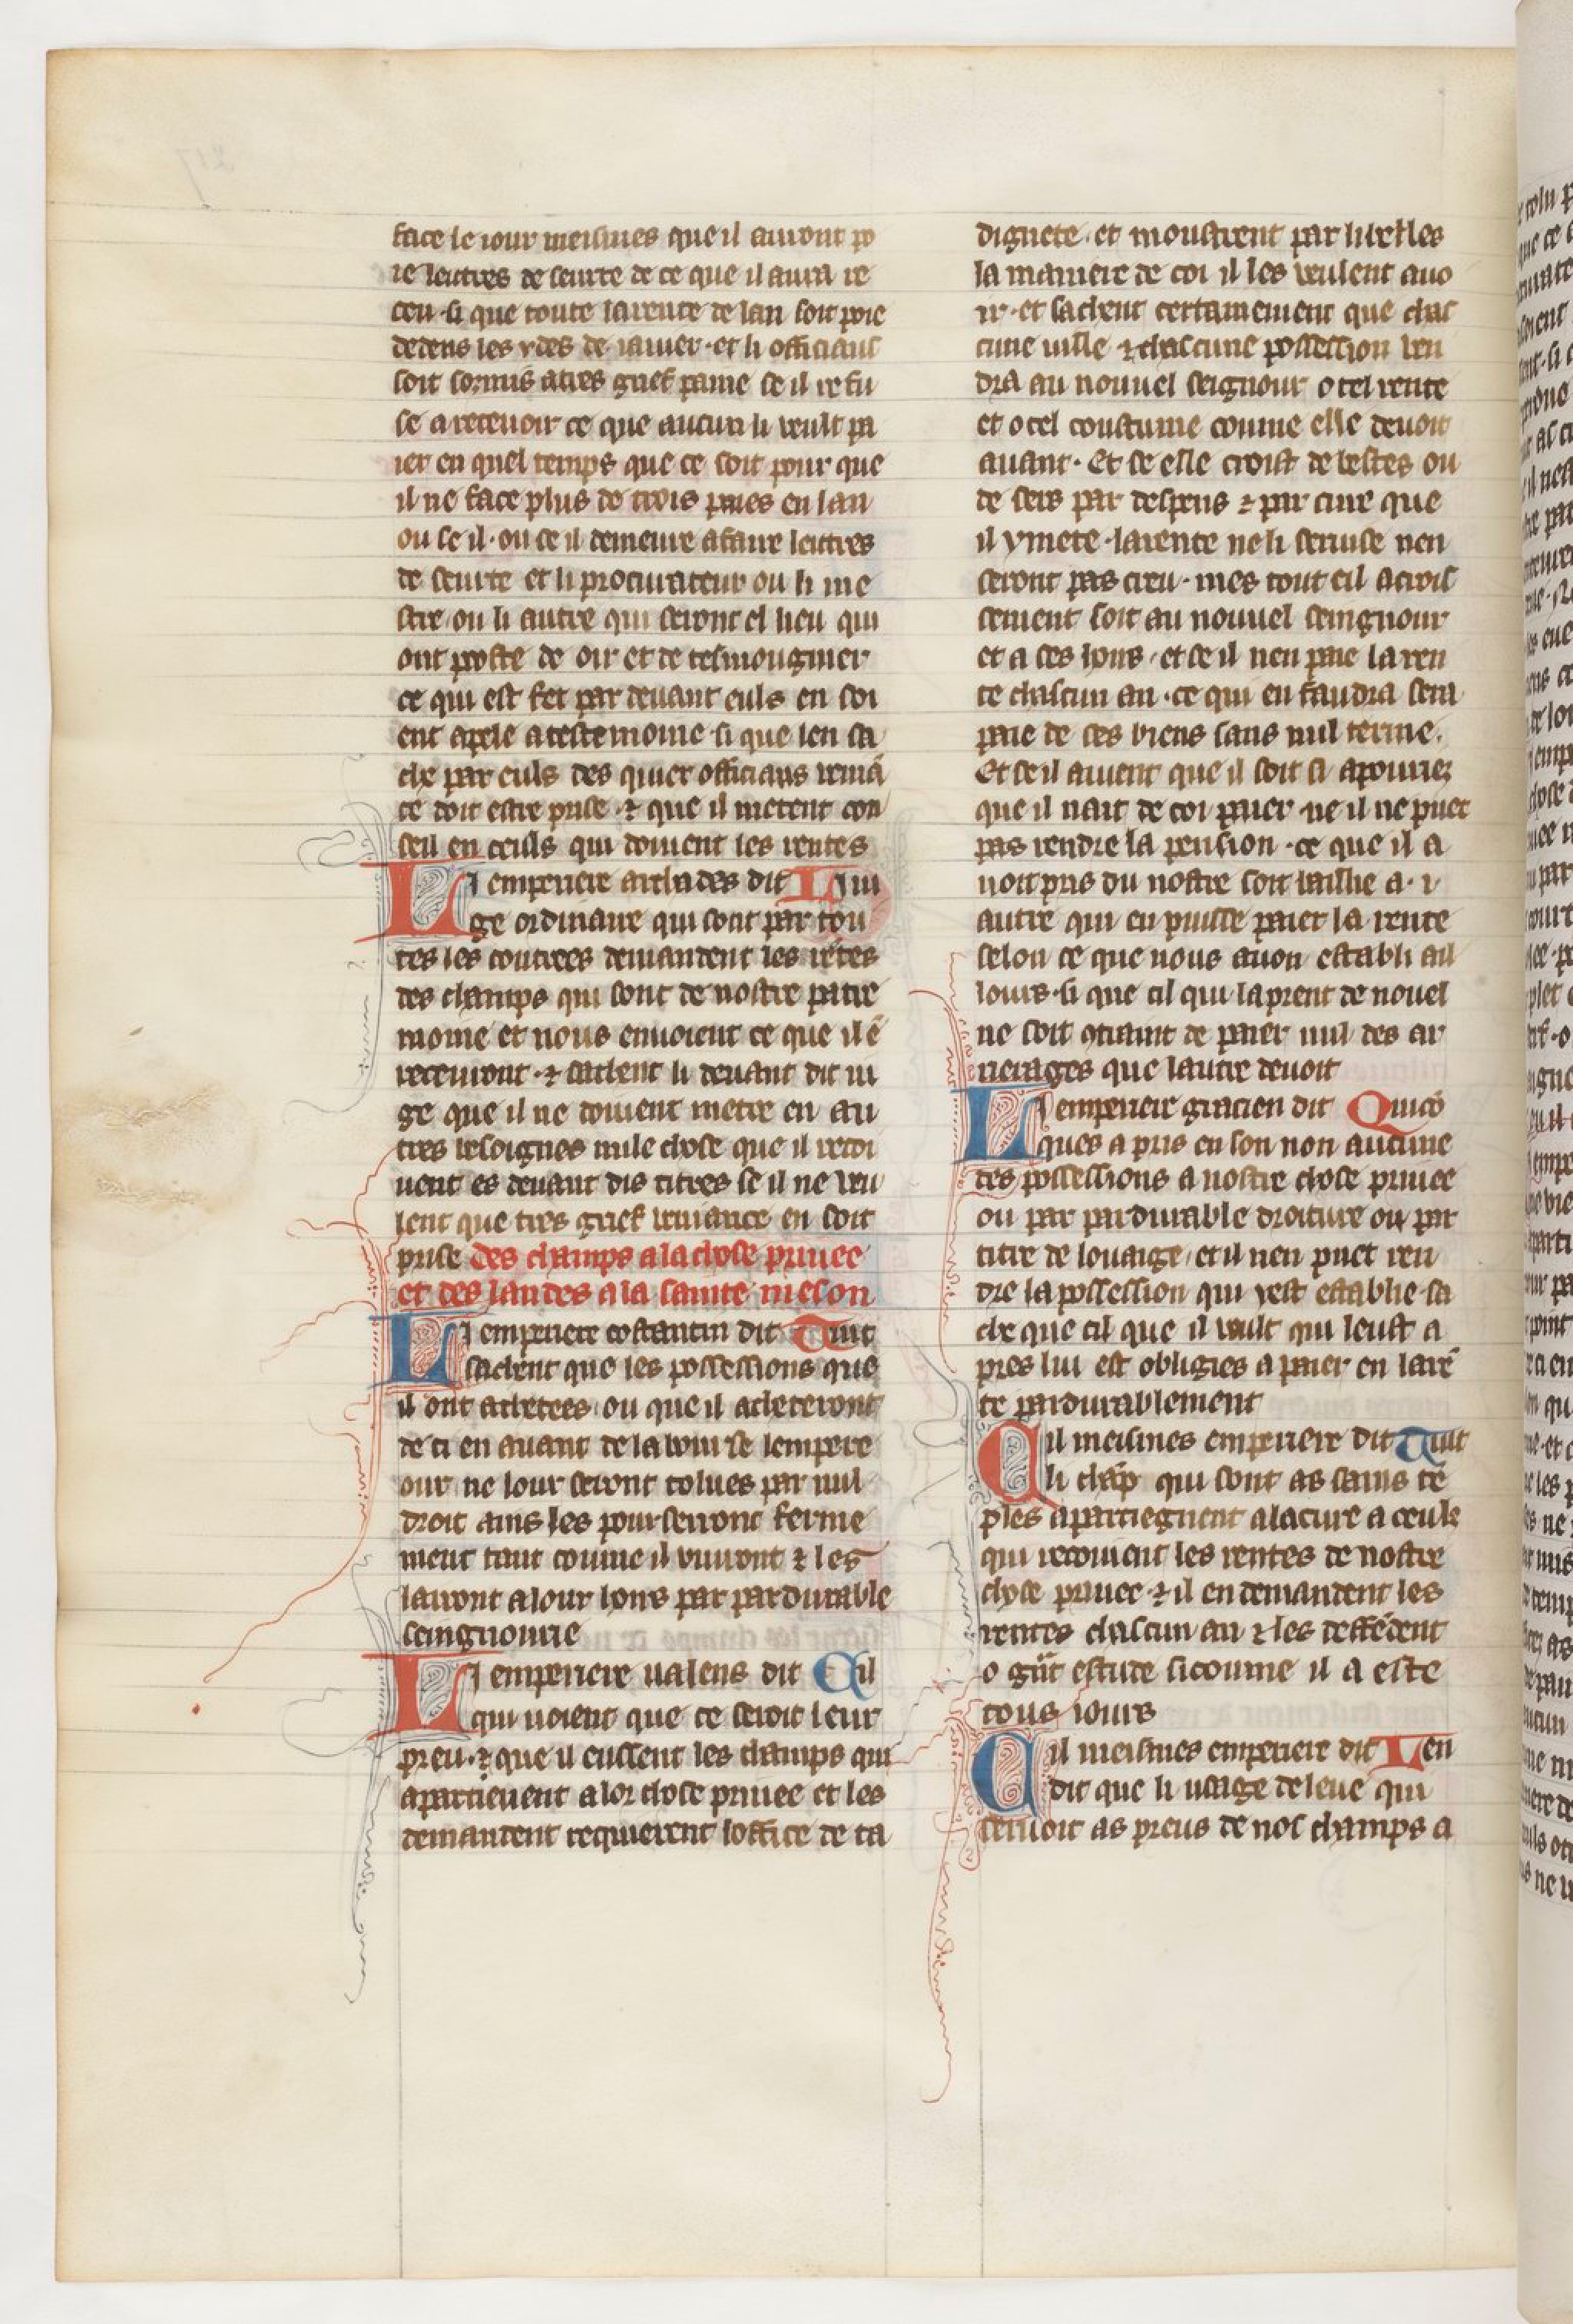 face le iour meismes que il auront po
ie lettres de seurte de ce que il aura re
ceu · si que toute la rente de lan soit poie
dedens les ydes de ianuier · et li officiaus
soit sozmis a tres grief paine se il refu
se a receuoir ce que aucun li veult pa
ier en quel temps que ce soit pour que
il ne face plus de trois paies en lan
ou se il · ou se il demeure a faire lettres
de seurte et li procurateur ou li me
stre ou li autre qui seront el lieu qui
ont poste de oir et de tesmougnier
ce qui est fet par deuant euls en soi
ent apele a testemoine si que len sa
che par euls des quier officiaus venia
ce doit estre prise · ⁊ que il metent con
seil en ceuls qui doiuent les rentes
Li emperiere archades dit Li iu
ge ordinaire qui sont par tou
tes les contrees demandent les retes
des champs qui sont de nostre patre
moine et nous enuoient ce que il ē
receuront · ⁊ sachent li deuant dit iu
ge que il ne doiuent metre en au
tres besoignes nule chose que il recoi
uent es deuant dis titres se il ne veu
lent que tres grief veniance en soit
prise des champs a la chose priuee
et des landes a la sainte meson
Li emperiere costantin dit Tuit
sachent que les possessions que
il ont achetees ou que il acheteront
de ci en auant de la bourse lempere
our ne lour seront tolues par nul
droit ains les pourserront ferme
ment tant comme il viuront ⁊ les
lairont a lour hoirs par pardurable
seingnourie
Li emperiere ualens dit Cil
qui uoient que ce seroit leur
preu · ⁊ que il eussent les champs qui
apartienent a loz chose priuee et les
demandent requierent loffice de ta
dignete · et moustrent par libelles
la maniere de coi il les veulent auo
ir · et sachent certainement que chas
cune uille ⁊ chascune possession ven
dra au nouuel seignour o tel rente
et o tel coustume comme elle deuoit
auant · Et se elle croist de bestes ou
de sers par despens ⁊ par cure que
il y mete · la rente ne li seruise nen
seront pas creu · mes tout cil acrois
sement soit au nouuel seingnour
et a ces hoirs · et se il nen paie la ren
te chascun an · ce qui en faudra sera
paie de ces biens sans nul terme ·
Et se il auient que il soit si apouriez
que il nait de coi paier · ne il ne puet
pas rendre la pension · ce que il a
uoit pris du nostre soit baillie a · i ·
autre qui en puisse paier la rente
selon ce que nous auon establi ail
lours · si que cil qui la prent de nouel
ne soit cōtraint de paier nul des ar
rierages que lautre deuoit
Li emperiere gracien dit Quicō
ques a pris en son non aucune
des possessions a nostre chose priuee
ou par pardurable droiture ou par
titre de louaige · et il nen puet ren
dre la possession qui y est establie · sa
che que cil que il vault qui leust a
pres lui est obligies a paier en la rē
te pardurablement
Cil meismes emperiere dit Tuit
li chāp qui sont as sains tē
ples apartiegnent a la cure a ceuls
qui recoiuent les rentes de nostre
chose priuee · ⁊ il en demandent les
rentes chascun an ⁊ les deffēdent
o grāt estude si comme il a este
tous iours
Cil meismes emperiere dit Len
dit que li usage de leue qui
seruoit as preus de nos champs a